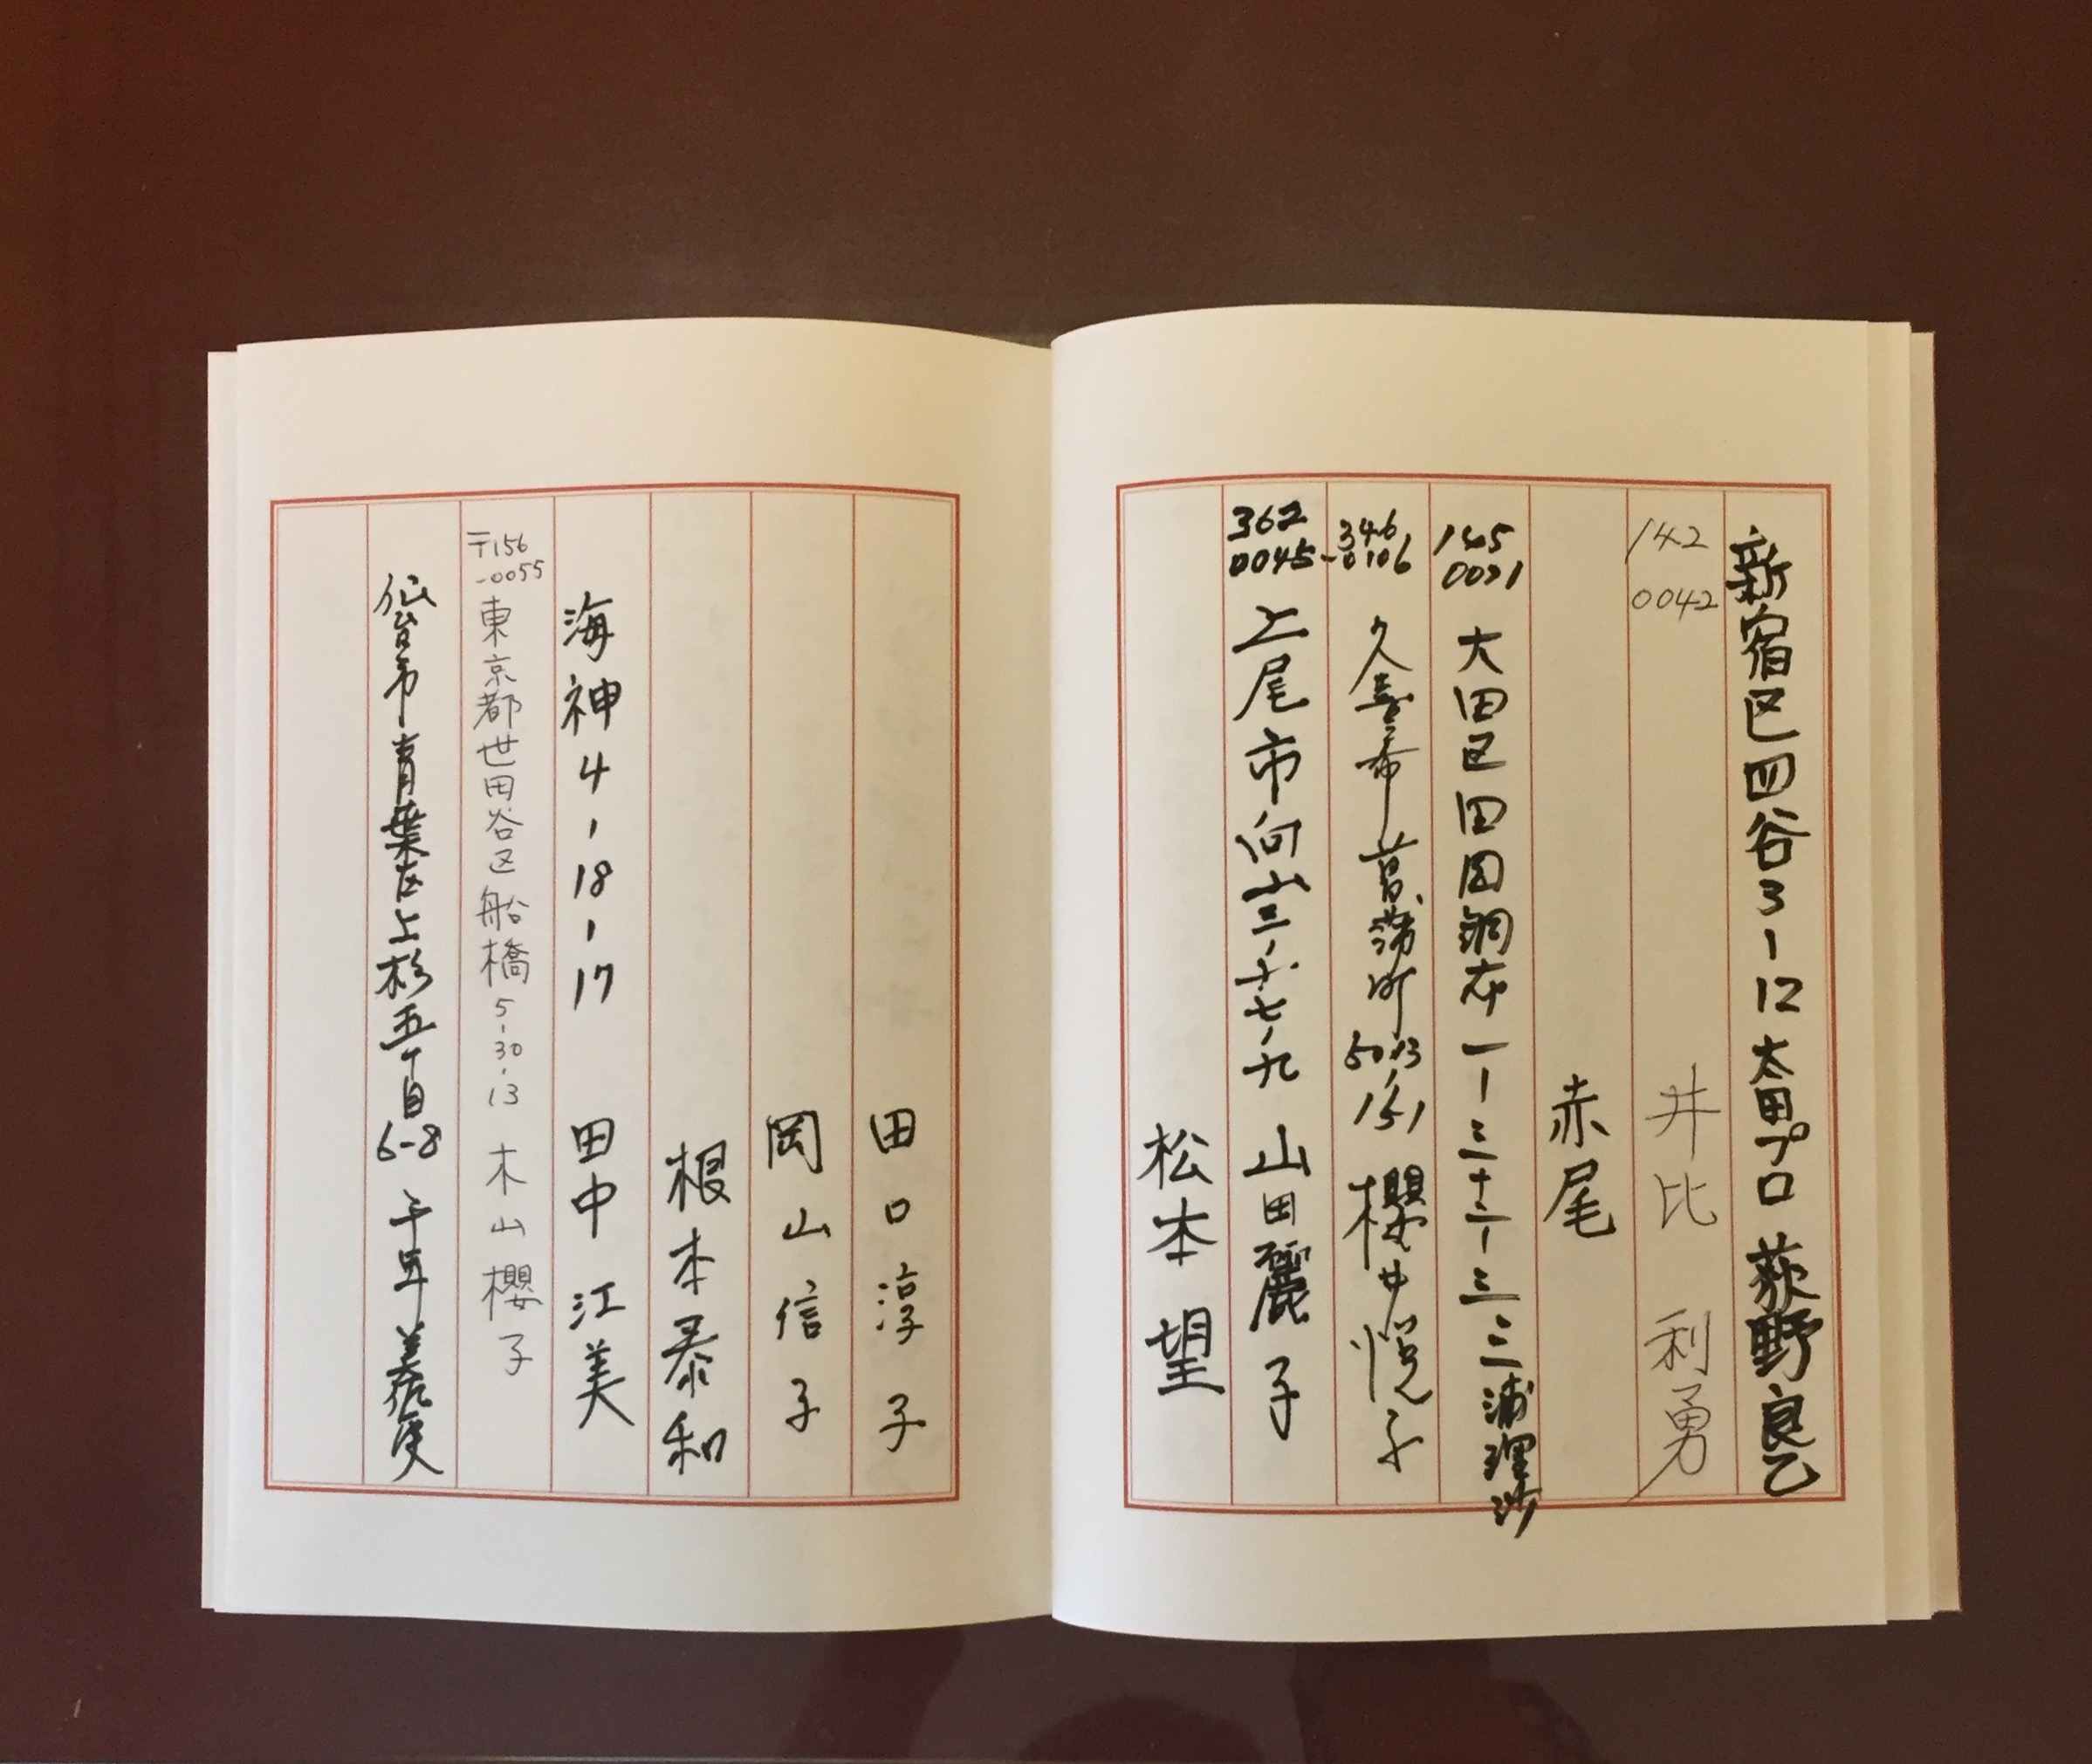 新宿区四谷3-12 太田プロ 萩野良乙
142
0042
井比 利勇
赤尾
145
0071
大田区田園調布一-三十三-三 三浦理沙
346
-0106
久喜市菖蒲町 櫻井悦子
362
0045
上尾市向山三-十七-九 山田麗子
松本 望
田口淳子
岡山信子
根本泰和
海神4-18-17 田中 江美
〒156
-0055
東京都世田谷区船橋5-30-13 木山櫻子
仙台市青葉区上杉五丁目6-8